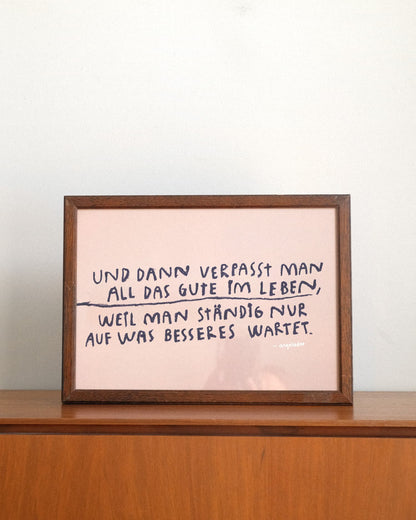 UND DANN VERPASST MAN
ALL DAS GUTE IM LEBEN,
WEIL MAN STÄNDIG NUR
AUF WAS BESSERES WARTET.